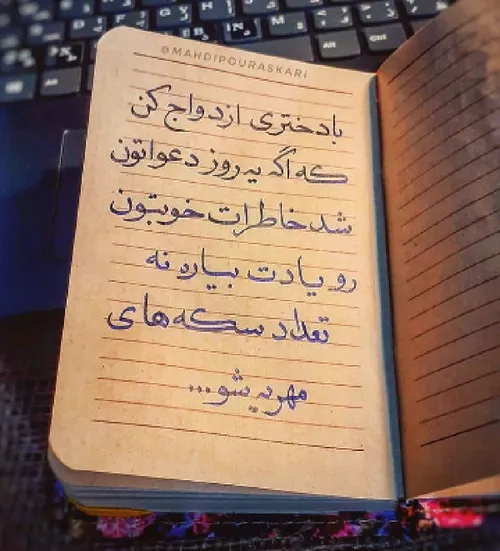 @MAHDIPOURASKARI
با دختری ازدواج کن
که اگه یه روز دعواتون
شد خاطرات خوبتون
رو یادت بیاره نه
تعداد سکه های
مهریه شو...